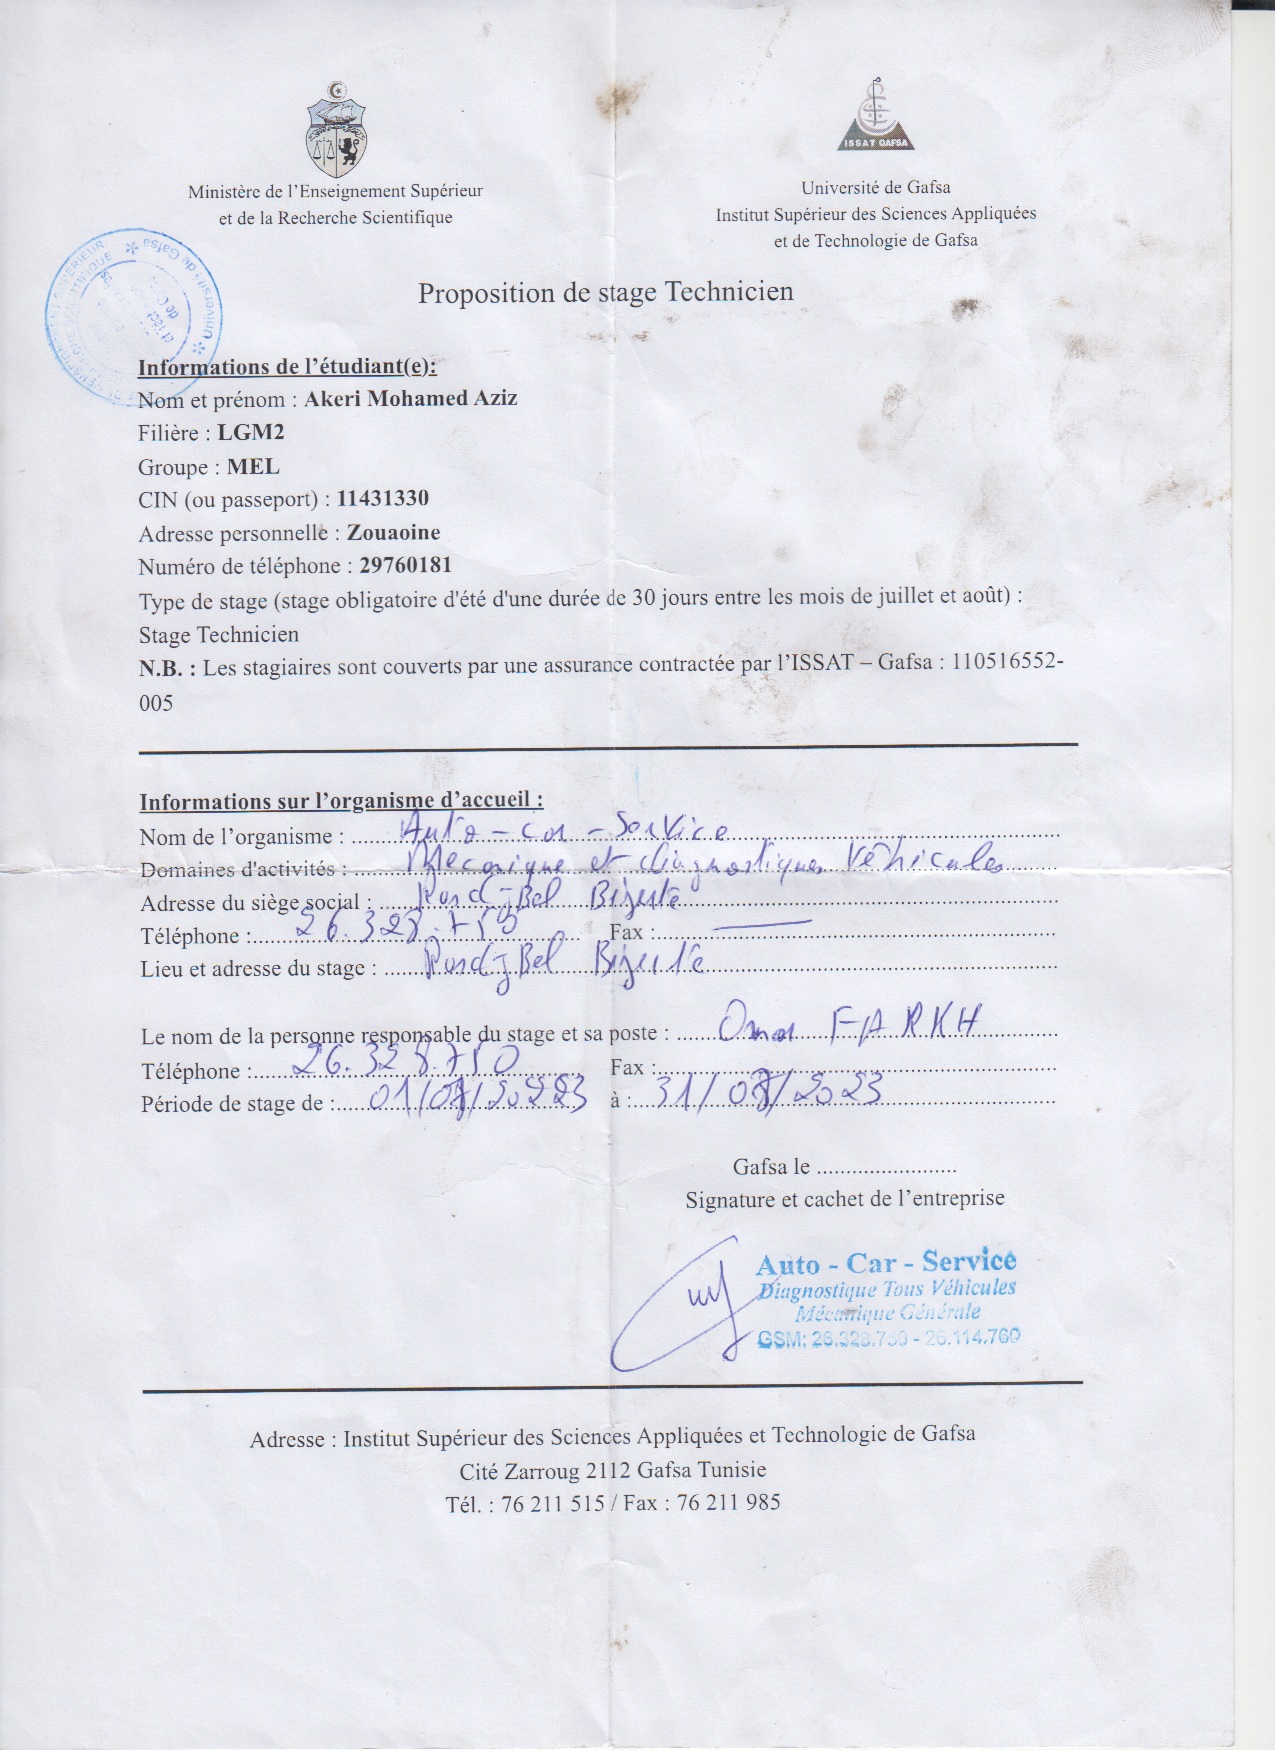 ISSAT GAFSA
Ministère de l'Enseignement Supérieur
et de la Recherche Scientifique
Université de Gafsa
Institut Supérieur des Sciences Appliquées
et de Technologie de Gafsa
Université de Gafsa
Proposition de stage Technicien
Informations de l'étudiant(e):
Nom et prénom : Akeri Mohamed Aziz
Filière : LGM2
Groupe : MEL
CIN (ou passeport) : 11431330
Adresse personnelle : Zouaoine
Numéro de téléphone : 29760181
Type de stage (stage obligatoire d'été d'une durée de 30 jours entre les mois de juillet et août) :
Stage Technicien
N.B. : Les stagiaires sont couverts par une assurance contractée par l'ISSAT – Gafsa : 110516552-
005
Informations sur l'organisme d'accueil :
Nom de l'organisme : Auto - Car - Service
Domaines d'activités : Mecanique et diagnostique Véhicules
Adresse du siège social : Bizerte
Téléphone : 26.328.750 Fax :
Lieu et adresse du stage : Bizerte
Le nom de la personne responsable du stage et sa poste : Omar FARKH
Téléphone : 26.328.750 Fax :
Période de stage de : à :
Gafsa le ........................
Signature et cachet de l'entreprise
Auto - Car - Service
Diagnostique Tous Véhicules
Mécanique Générale
GSM: 26.328.750 - 26.114.760
Adresse : Institut Supérieur des Sciences Appliquées et Technologie de Gafsa
Cité Zarroug 2112 Gafsa Tunisie
Tél. : 76 211 515 / Fax : 76 211 985